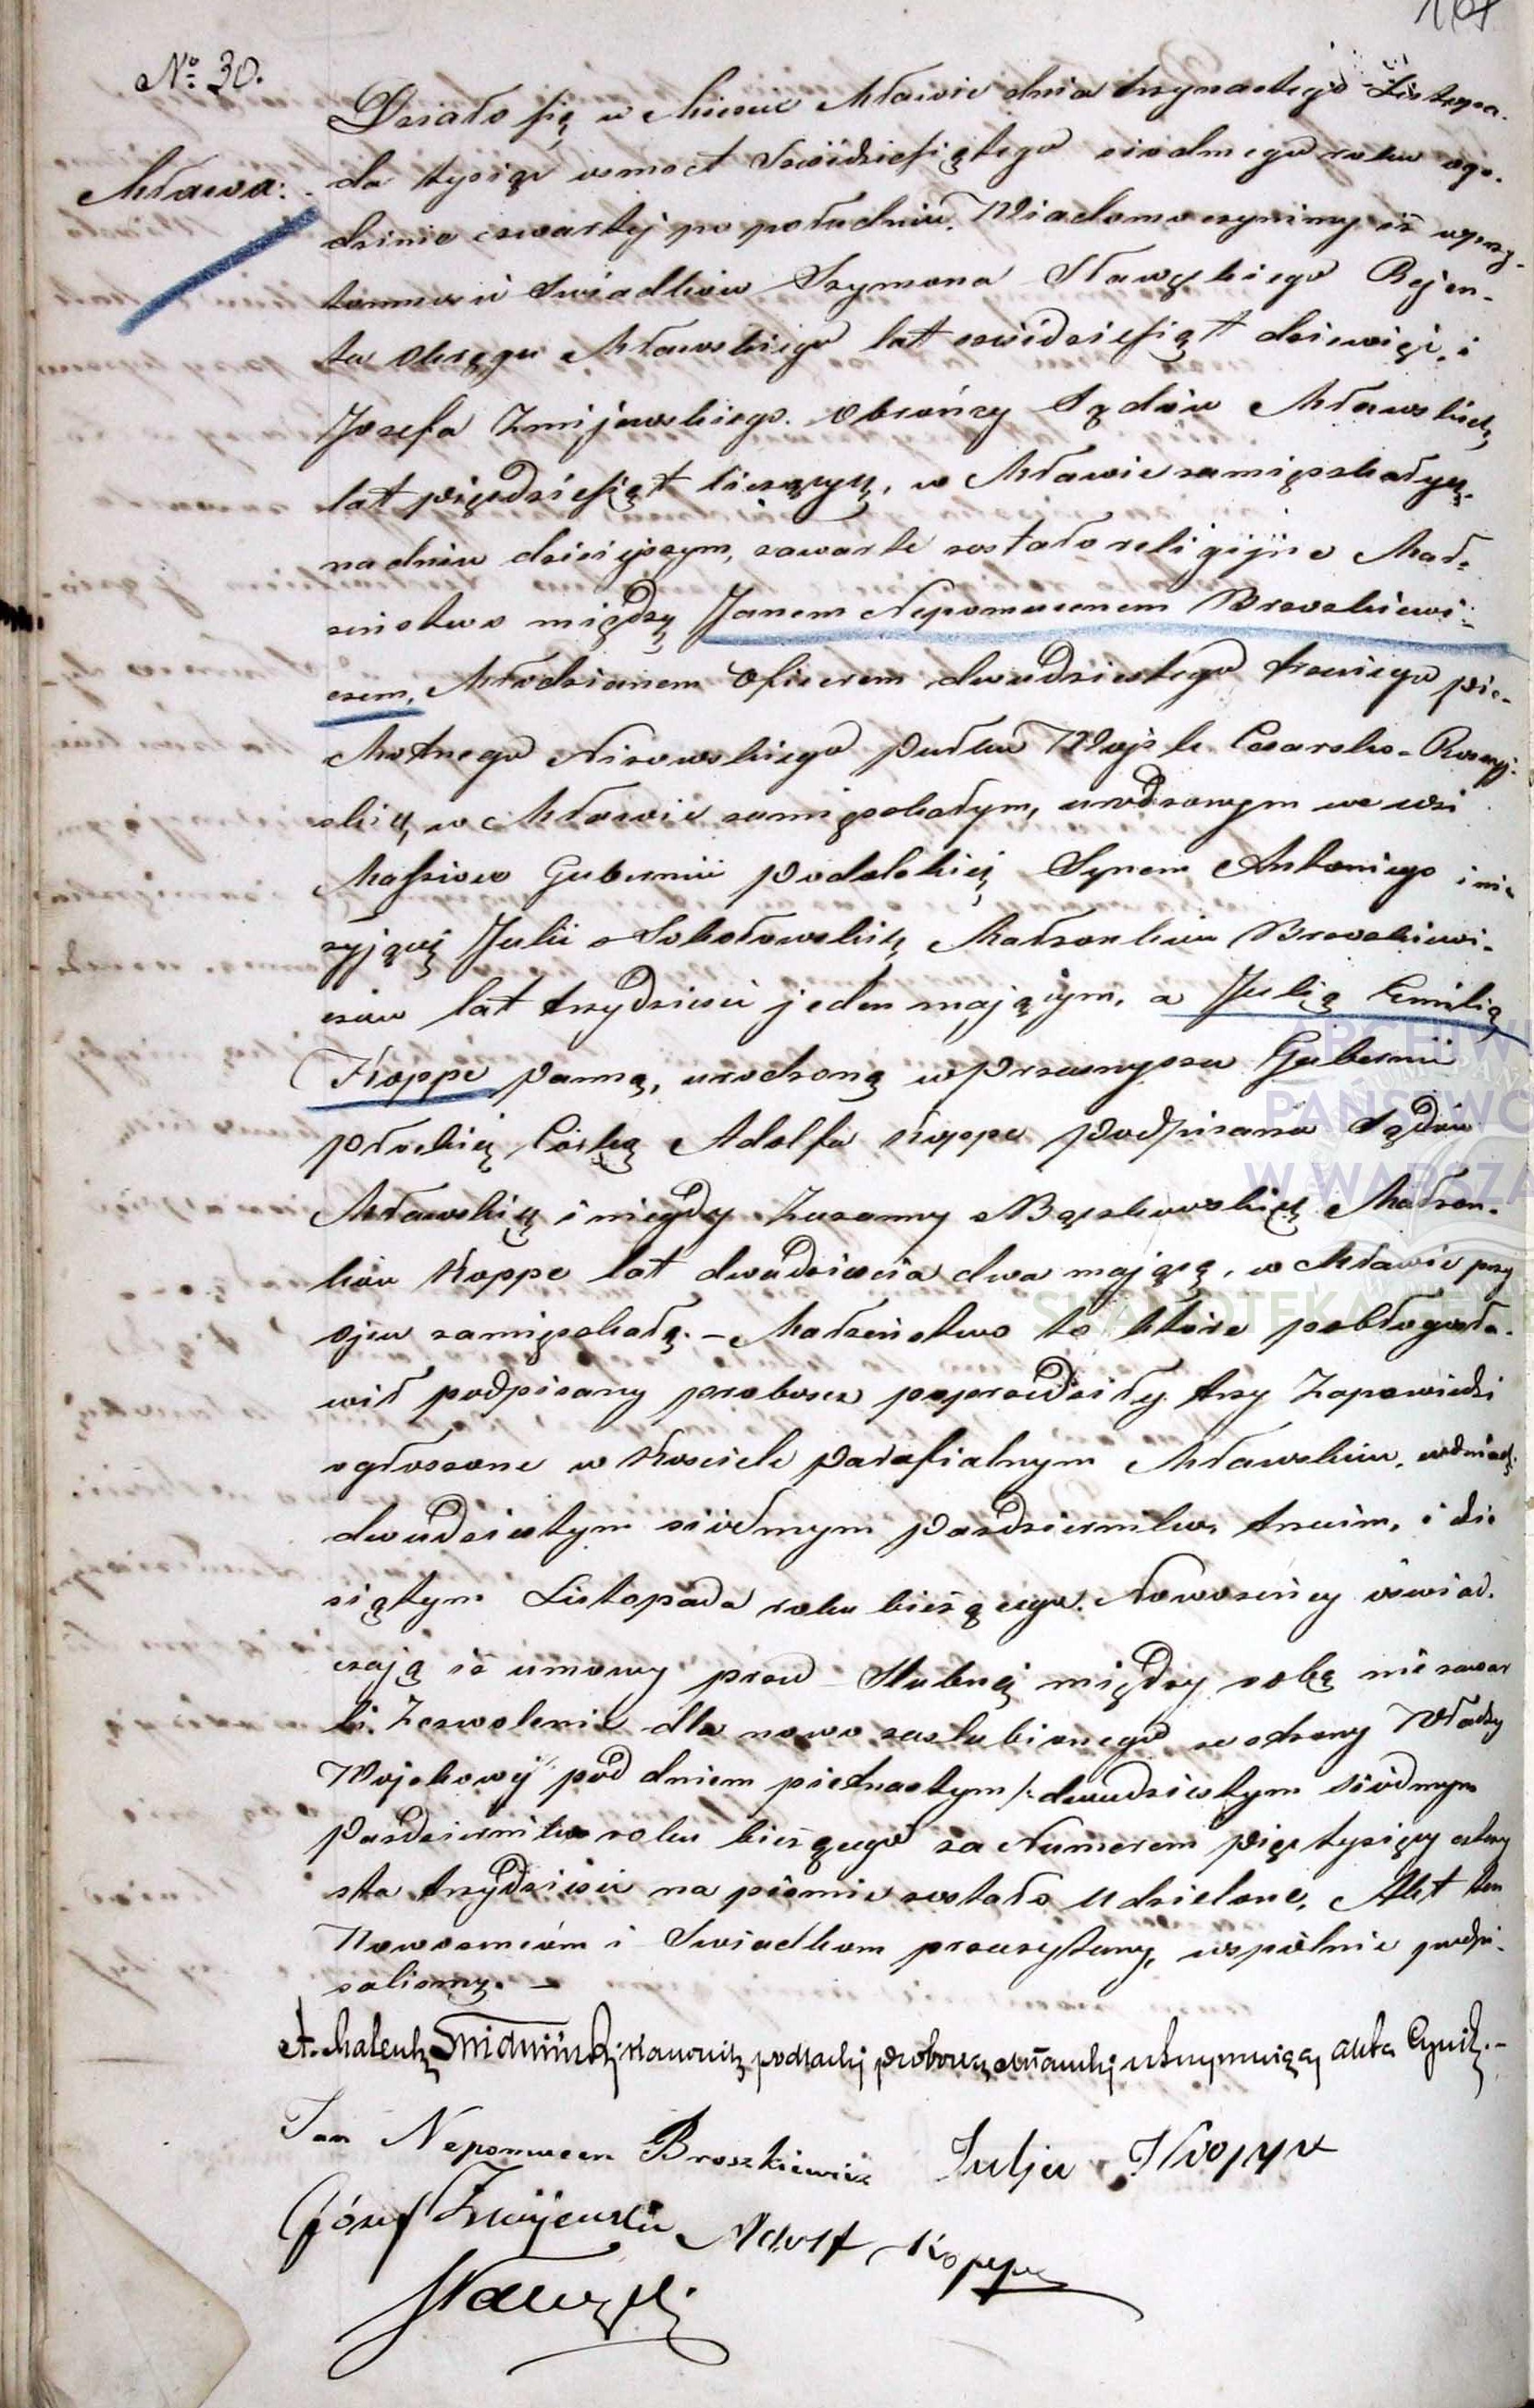 № 30.
Mława:
Działo się w Mieście Mławie dnia trzynastego Listopa-
da tysiąc osmset sześćdziesiątego siodmego roku ogo-
dzinie czwartej po południu. Wiadomo czynimy iż wprzy-
tomności Swiadków Szymona Sławęckiego Rejen-
ta Okręgu Mławskiego lat sześćdziesiąt dziewięć, i
Jozefa Zmijewskiego Obrońcy Sądów Mławskich,
lat pięćdziesiąt liczących, w Mławie zamięszkałych
na dniu dzisiejszym, zawarte zostało religijne Mał-
żeństwo między Janem Nepomucenem Broszkiewi-
czem, Młodzianem Oficerem dwudziestego trzeciego pie-
chotnego Nizowskiego Pułku Wojsk Cesarsko-Rossyj-
skich, w Mławie zamięszkałym, urodzonym we wsi
Gubernii Podolskiej Synem Antoniego i nie
żyjącej Julii z Sokołowskich Małżonków Broszkiewi-
czów lat trzydzieści jeden mającym, a Julią Emilią
Koppe Panną, urodzoną w Przasnyszu Gubernii
Płockiej Córką Adolfa Koppe Podpisarza Sądów
Mławskich i niegdy Zuzanny z Małżon-
ków Koppe lat dwadzieścia dwa mającą, w Mławie przy
Ojcu zamięszkałą. – Małżeństwo to które pobłogosła-
wił podpisany proboszcz poprzedziły trzy Zapowiedzi
ogłoszone w Kościele Parafialnym Mławskim, w dniach
dwudziestym siódmym Pazdziernika, trzecim, i dzie
siątym Listopada roku bieżącego. Nowożeńcy oświad-
czają iż umowy przed Slubnej między sobą nie zawar
li. Zezwolenie dla nowo zaslubionego ze strony Władzy
Wojskowej pod dniem piętnastym /: dwudziestym siódmym
Pazdziernika roku bieżącego za Numerem pięć tysięcy cztery
sta trzydzieści na piśmie zostało udzielone, Akt ten
Nowożeńcom i Swiadkom przeczytany, wspólnie podpi-
saliśmy. –
proboszcz Mławski utrzymujący Akta Cywil. –
Jan Nepomucen Broszkiewicz Julja Koppe
Józef Zmijewski Adolf Koppe
Sławęcki